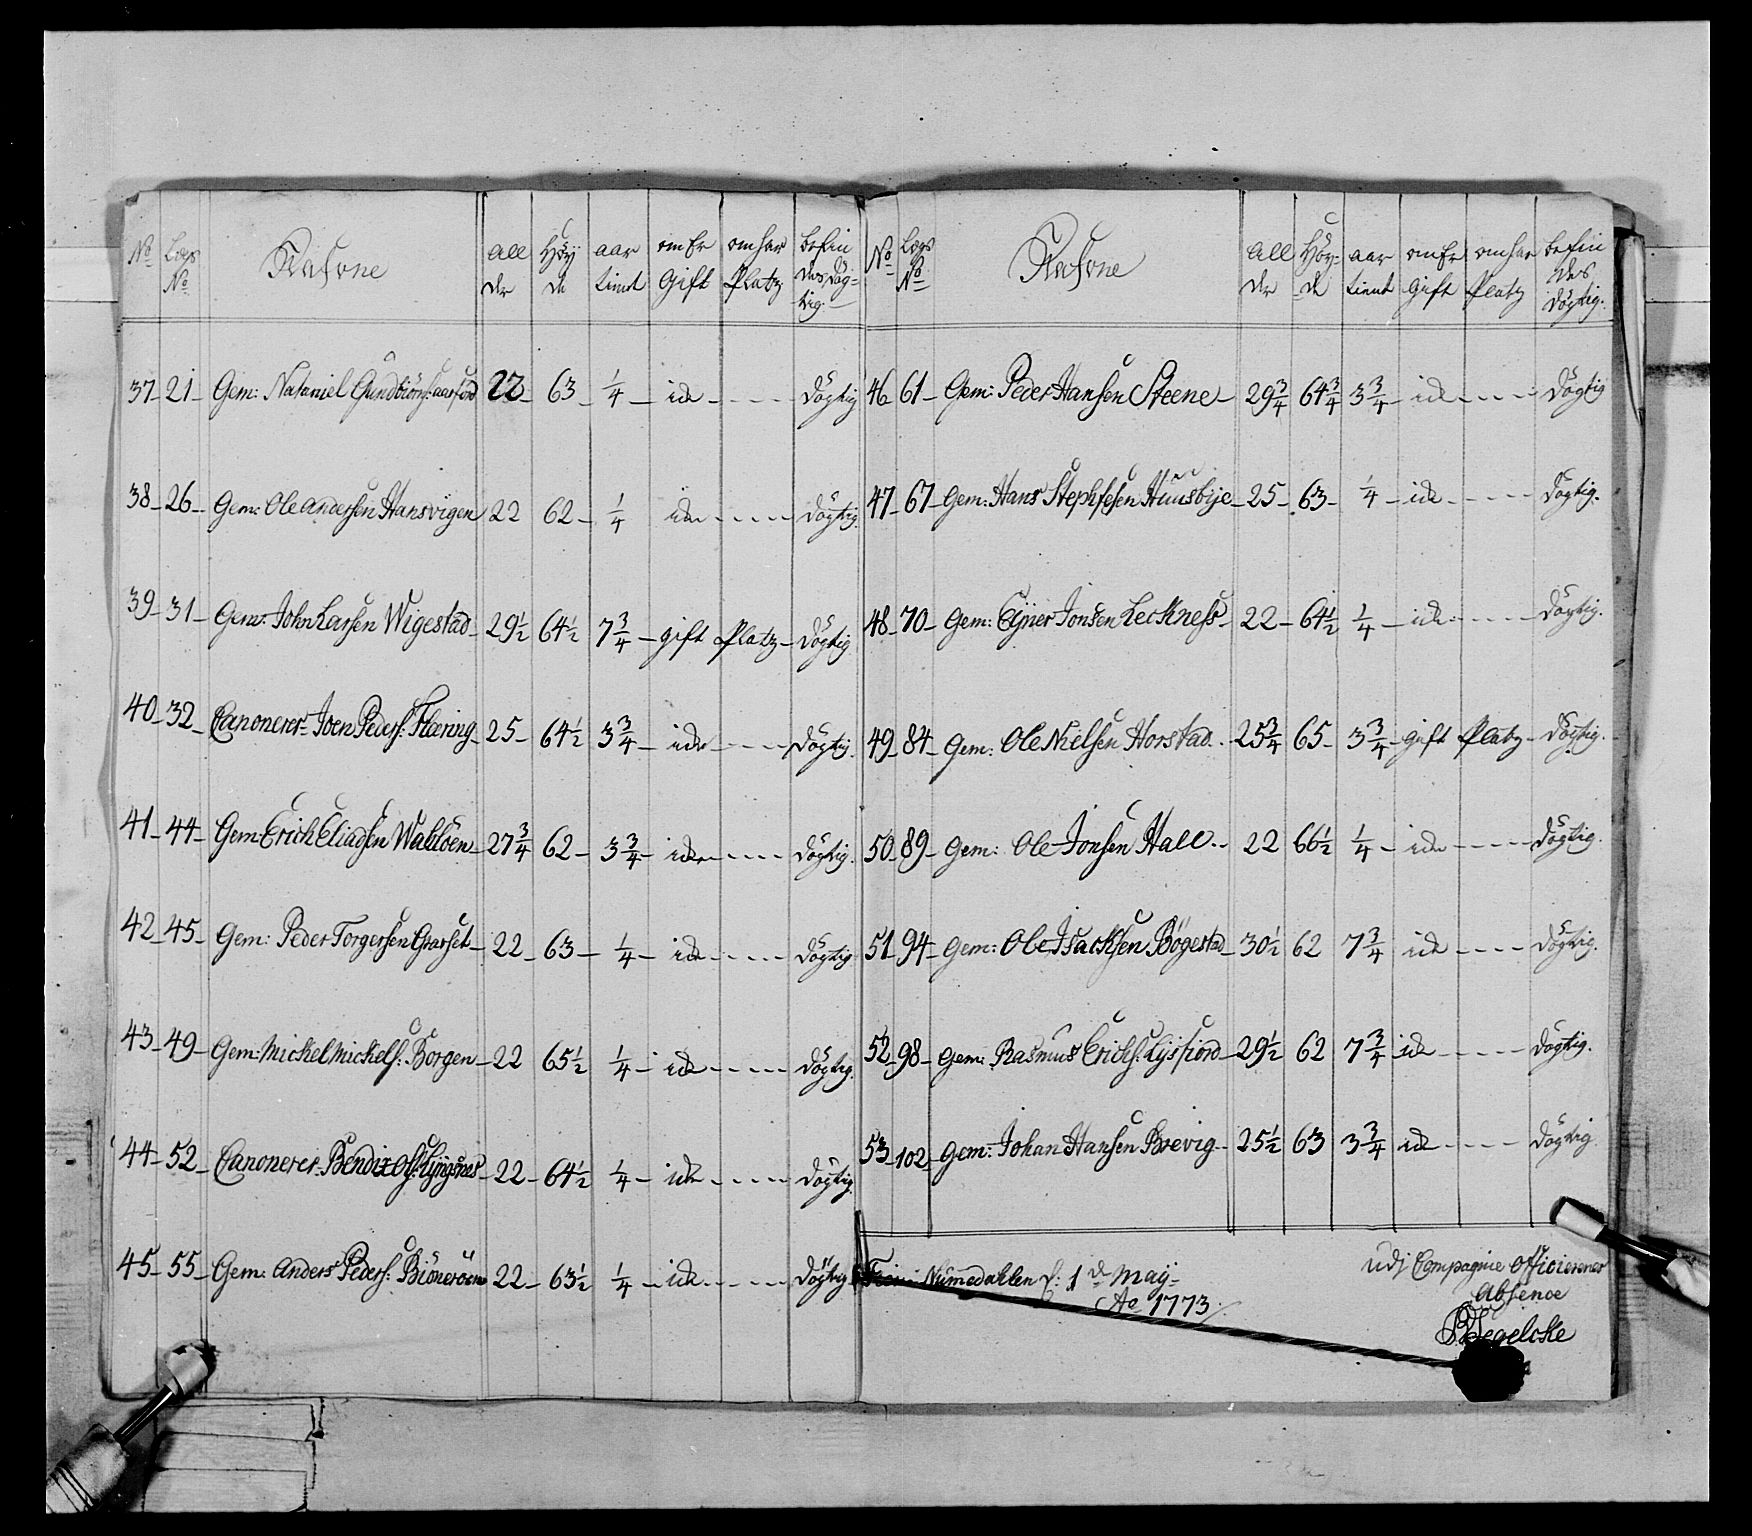 No Lægs No Nafvne Allder Høyde aar tient om Er Gift om har Platz befindes døgtig
37 - 21 - Gem: Nataniel Gundbiörns: aarfiord 22 - 63 - 1/4 - icke - - - - døgtig
38 - 26 - Gem: Ole Andersen Hansvigen 22 62 - 1/4 icke - - - - døgtig.
39 - 31 - Gem: John Larsen Wigestad - 29½ 64½ 7¾ - gift Platz - døgtig
40 - 32 - Canonerer Joen Peders: Flæring - 25 - 64½ 3¾ - icke - - - - døgtig.
41 - 44 - Gem: Erich Eliadsen Wahlöen - 27¾ 62 - 3¾ - icke - - - - døgtig.
42 - 45 - Gem: Peder Torgersen Grarset - 22 - 63 - 1/4 - icke - - - - døgtig
43 - 49 - Gem: Mickel Mickels: Borgen - 22 65½ 1/4 - icke - - - - døgtig.
44 - 52 - Canonerer Bendix Ols: Lÿngsnes - 22 - 64½ 1/4 - icke - - - - døgtig.
45 - 55 - Gem: Anders Peders: Biöneröen 22 - 63½ 1/4 - icke - - - - døgtig
No Lægs No Nafvne Allder Høyde aar tient om Er gift om har Platz befindes døgtig.
46 61 - Gem: Peder Hansen Steene - 29¾ 64¾ 3¾ - icke - - - - døgtig
47 - 67 - Gem: Hans Stephfesen Huusbÿe - 25 - 63 - 1/4 - icke - - - - døgtig.
48 - 70 - Gem: Ejner Jonsen Leckness - 22 - 64½ 1/4 - icke - - - - døgtig.
49 - 84 - Gem: Ole Nielsen Horstad - 25¾ 65 - 3¾ - gift Platz - døgtig.
50 - 89 - Gem: Ole Jonsen Hall - 22 66½ 1/4 - icke - - - - døgtig.
51 - 94 - Gem: Ole Isacksen Bøgestad - 30½ 62 7¾ icke - - - - døgtig.
52 - 98 - Gem: Rasmus Erichs: Lysfiord - 29½ 62 7¾ icke - - - - døgtig.
53 - 102 - Gem: Johan Hansen Brevig - 25½ 63 3¾ icke - - - - døgtig
Numedahlen d: 1de Maÿ
Ao 1773
udj Compagnie Officierenes
Absence